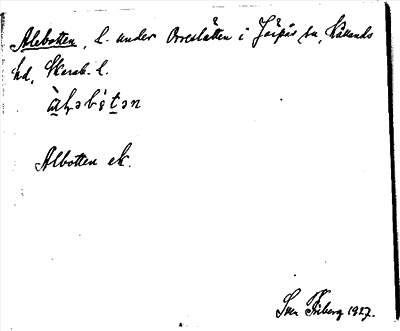 Alebotten, l. under Orreslätten i Järpås sn, Kållands
hd, Skarab. l.
Albotten ek.
Sven Friberg 1927.